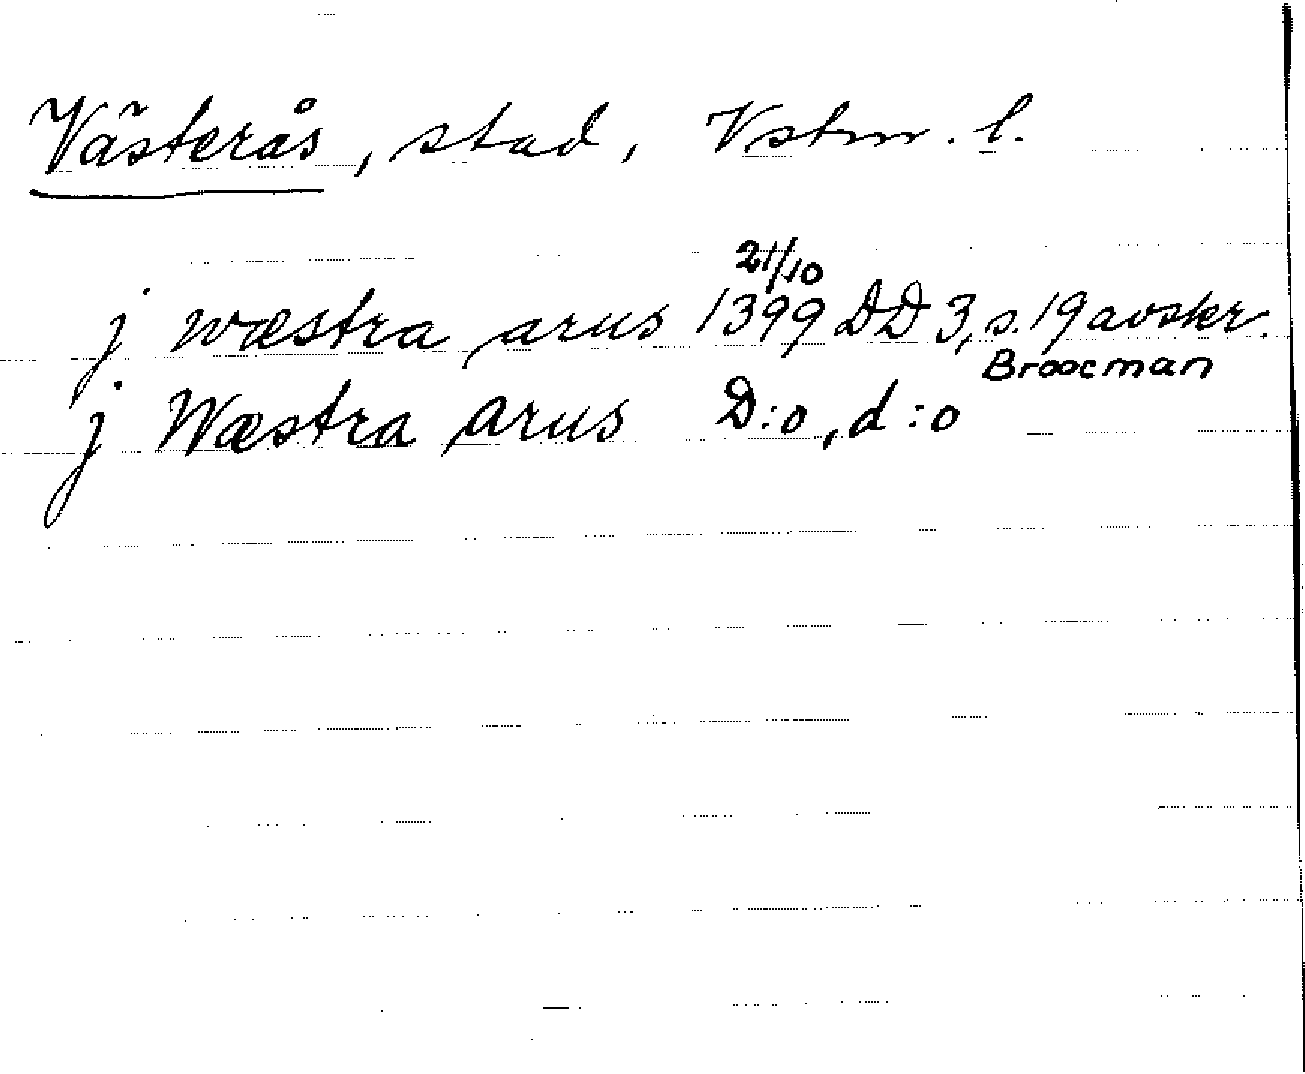 Västerås, stad, Vstm. l.
21/10
j wæstra arus 1399 DD 3, s. 19 avskr.
Broocman
j Wæstra arus D:o, d:o